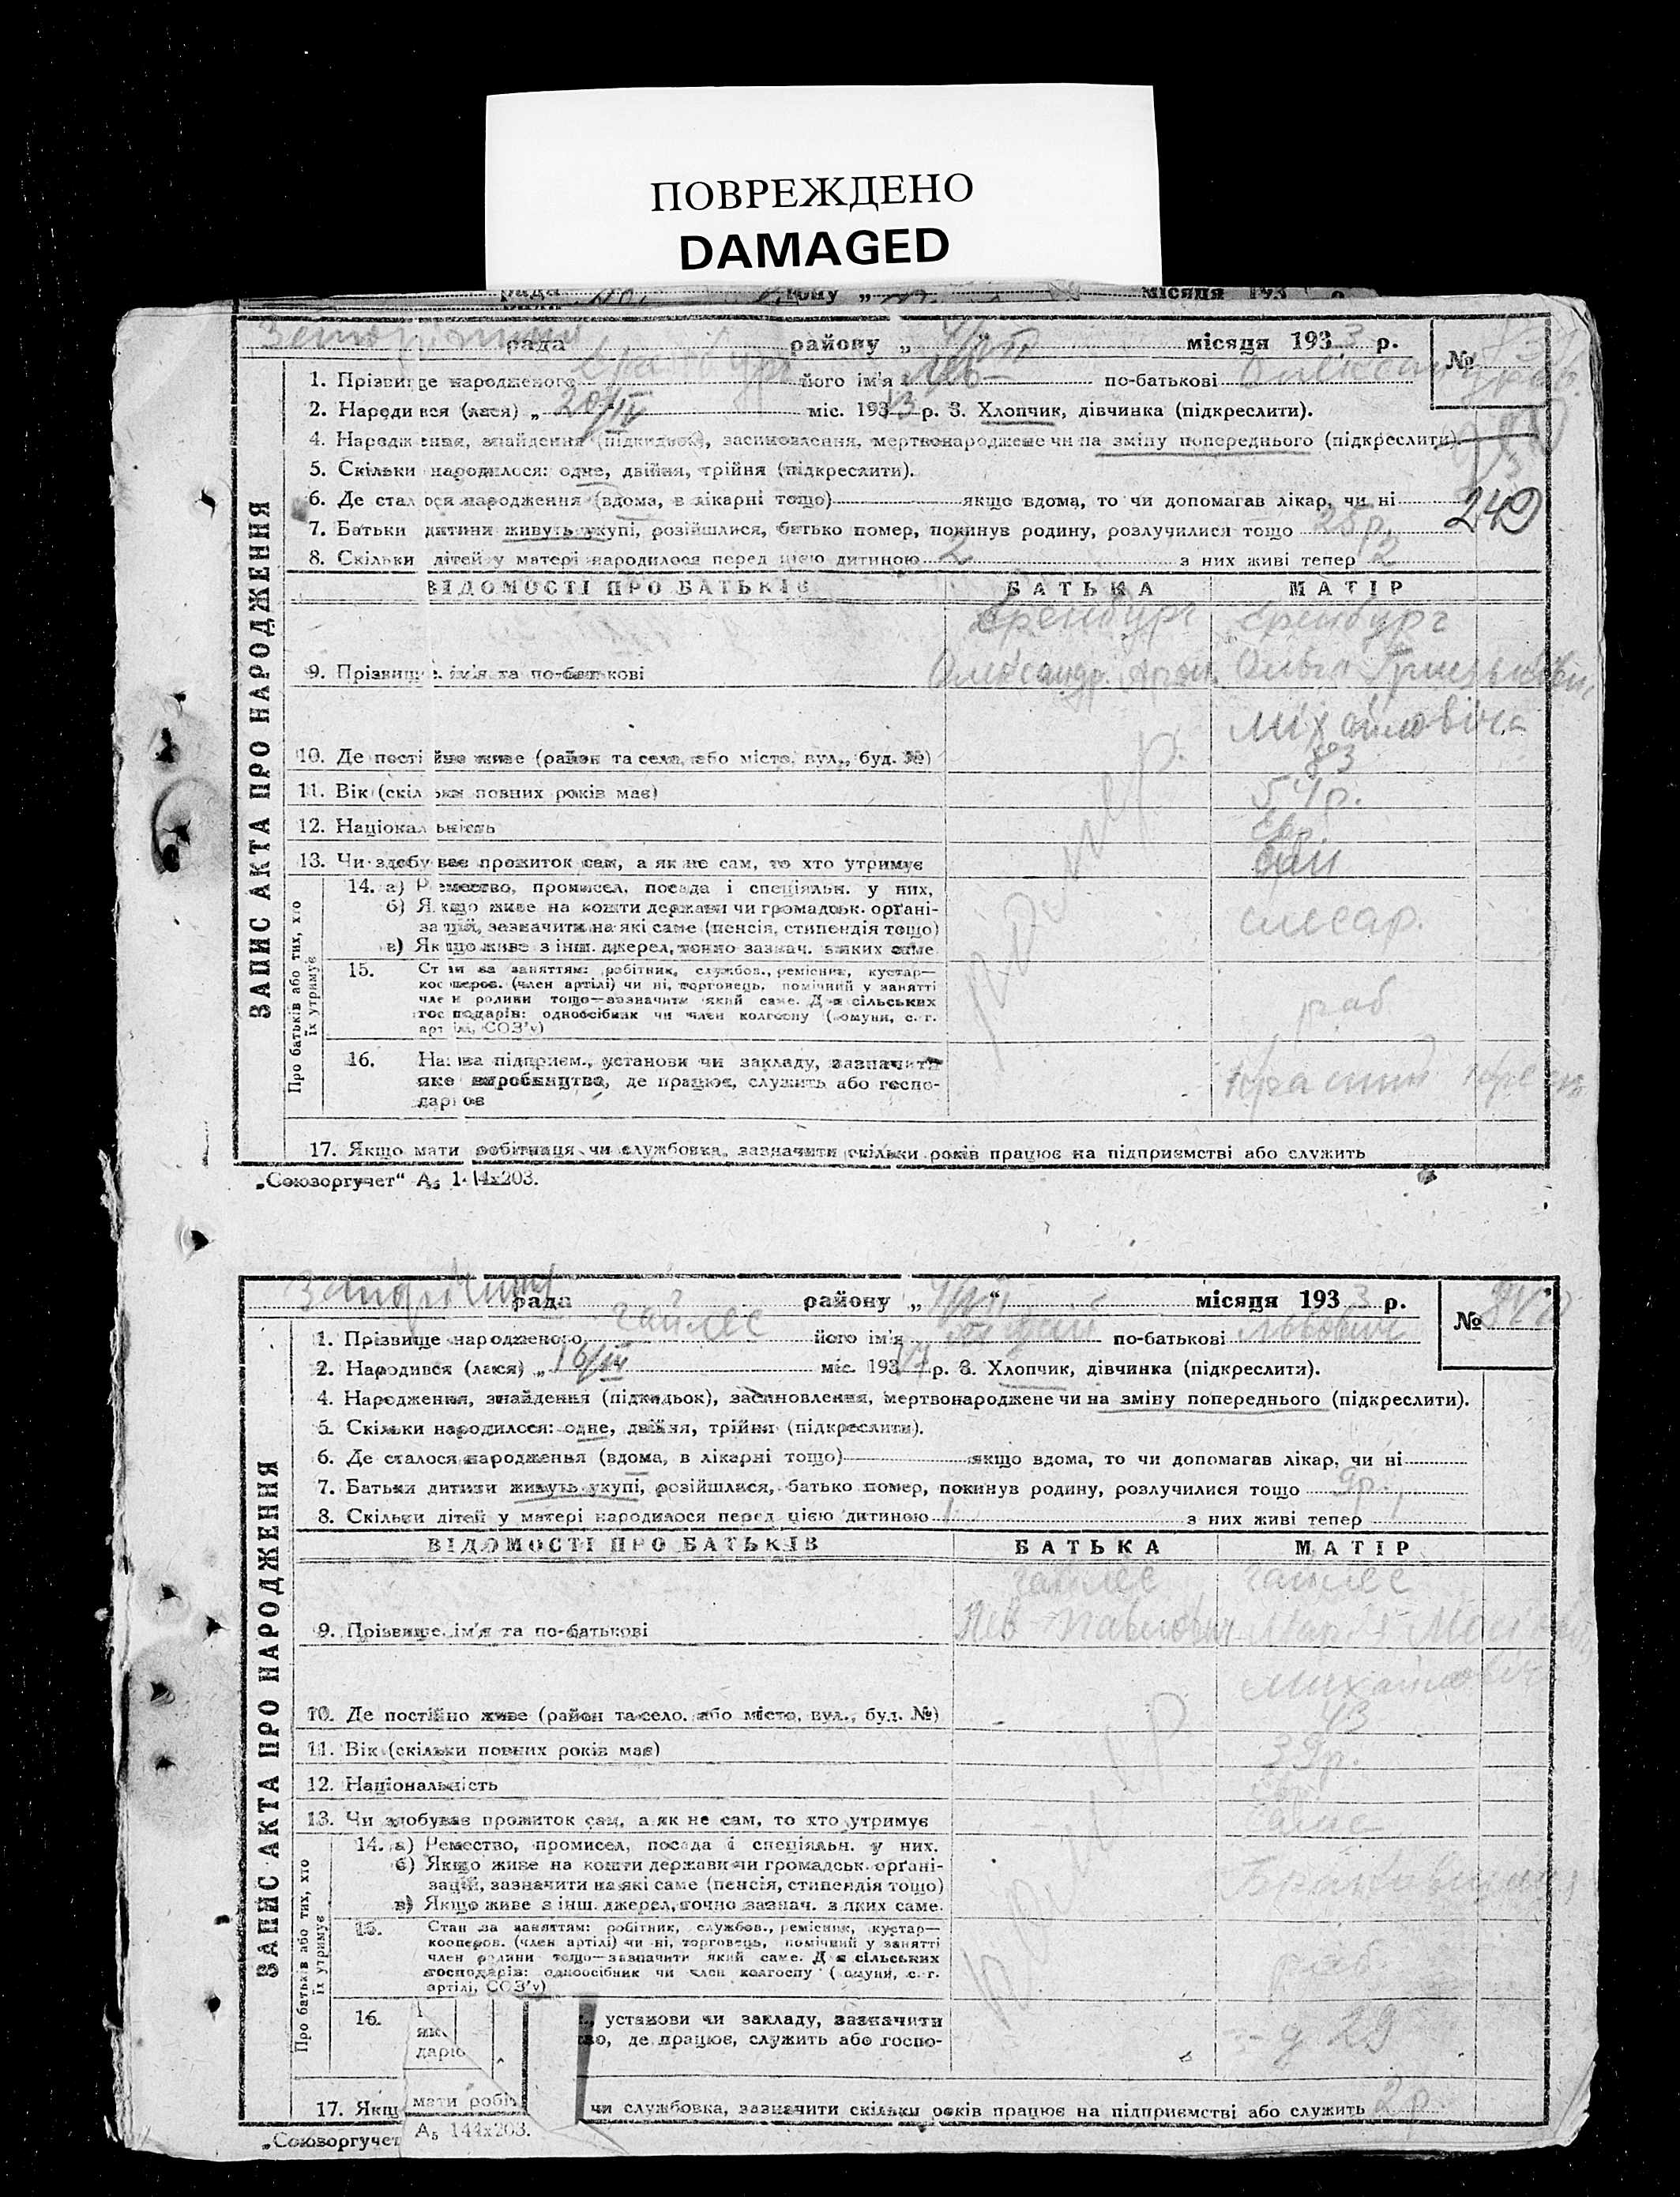 ПОВРЕЖДЕНО
DAMAGED
рада району „ місяця 193
рада району „ 4/VII “ місяця 1933 р. №
1. Прізвище народженого Еренбург його ім'я Лев по-батькові Олександров.
2. Народився (лася) „ 20/IV міс. 1933 р. 3. Хлопчик, дівчинка (підкреслити).
4. Народження, знайдення (підкидьок), засиновлення, мертвонароджене чи на зміну попереднього (підкреслити).
5. Скільки народилося: одне, двійня, трійня (підкреслити).
6. Де сталося народження (вдома, в лікарні тощо) якщо вдома, то чи допомагав лікар, чи ні
249
7. Батьки дитини живуть укупі, розійшлися, батько помер, покинув родину, розлучилися тощо 25 р.
8. Скільки дітей у матері народилося перед цією дитиною 2 з них живі тепер 2
ВІДОМОСТІ ПРО БАТЬКІВ БАТЬКА МАТІР
Еренбург Еренбург
9. Прізвище, ім'я та по-батькові Олександр Арон. Ольга
Міхайловіча
10. Де постійно живе (район та село, або місто, вул., буд. №) 83
11. Вік (скільки повних років має) 54 р.
12. Національність Євр.
13. Чи здобуває прожиток сам, а як не сам, то хто утримує сам
14. а) Ремество, промисел, посада і спеціяльн. у них.
б) Якщо живе на кошти держави чи громадськ. орґані-
зацій, зазначити на які саме (пенсія, стипендія тощо) слесар.
в) Якщо живе з інш. джерел, точно зазнач. з яких саме
15. Стан за заняттям: робітник, службов., ремісник, кустар—
кооперов. (член артілі) чи ні, торговець, помічний у занятті
член родини тощо—зазначити який саме. Для сільських
господарів: одноосібник чи член колгоспу (комуни, с.-г.
артілі, СОЗ'у) раб.
16. Назва підприєм., установи чи закладу, зазначити
яке виробництво, де працює, служить або госпо-
дарює
17. Якщо мати робітниця чи службовка, зазначити скільки років працює на підприємстві або служить
„Союзоргучет“ А₅ 144х203.
ЗАПИС АКТА ПРО НАРОДЖЕННЯ
Про батьків або тих, хто їх утримує
рада району „ 4/VII “ місяця 1933 р. №
1. Прізвище народженого Гайлес його ім'я по-батькові Львович
2. Народився (лася) „ 16/ міс. 193 р. 3. Хлопчик, дівчинка (підкреслити).
4. Народження, знайдення (підкидьок), засиновлення, мертвонароджене чи на зміну попереднього (підкреслити).
5. Скільки народилося: одне, двійня, трійня (підкреслити).
6. Де сталося народження (вдома, в лікарні тощо) якщо вдома, то чи допомагав лікар, чи ні
7. Батьки дитини живуть укупі, розійшлися, батько помер, покинув родину, розлучилися тощо 9 р.
8. Скільки дітей у матері народилося перед цією дитиною 1 з них живі тепер 1
ВІДОМОСТІ ПРО БАТЬКІВ БАТЬКА МАТІР
Гайлес Гайлес
9. Прізвище, ім'я та по-батькові Лев Павлович Марія
Михайловіч
10. Де постійно живе (район та село, або місто, вул., буд. №) 43
11. Вік (скільки повних років має) 39 р.
12. Національність Євр.
13. Чи здобуває прожиток сам, а як не сам, то хто утримує саме
14. а) Ремество, промисел, посада і спеціяльн. у них.
б) Якщо живе на кошти держави чи громадськ. орґані-
зацій, зазначити на які саме (пенсія, стипендія тощо)
в) Якщо живе з інш. джерел, точно зазнач. з яких саме.
15. Стан за заняттям: робітник, службов., ремісник, кустар—
кооперов. (член артілі) чи ні, торговець, помічний у занятті
член родини тощо—зазначити який саме. Для сільських
господарів: одноосібник чи член колгоспу (комуни, с.-г.
артілі, СОЗ'у) раб.
16. установи чи закладу, зазначити
яке де працює, служить або госпо-
дарю
17. Якщо мати робіт чи службовка, зазначити скільки років працює на підприємстві або служить 2 р.
„Союзоргучет А₅ 144х203.
ЗАПИС АКТА ПРО НАРОДЖЕННЯ
Про батьків або тих, хто їх утримує